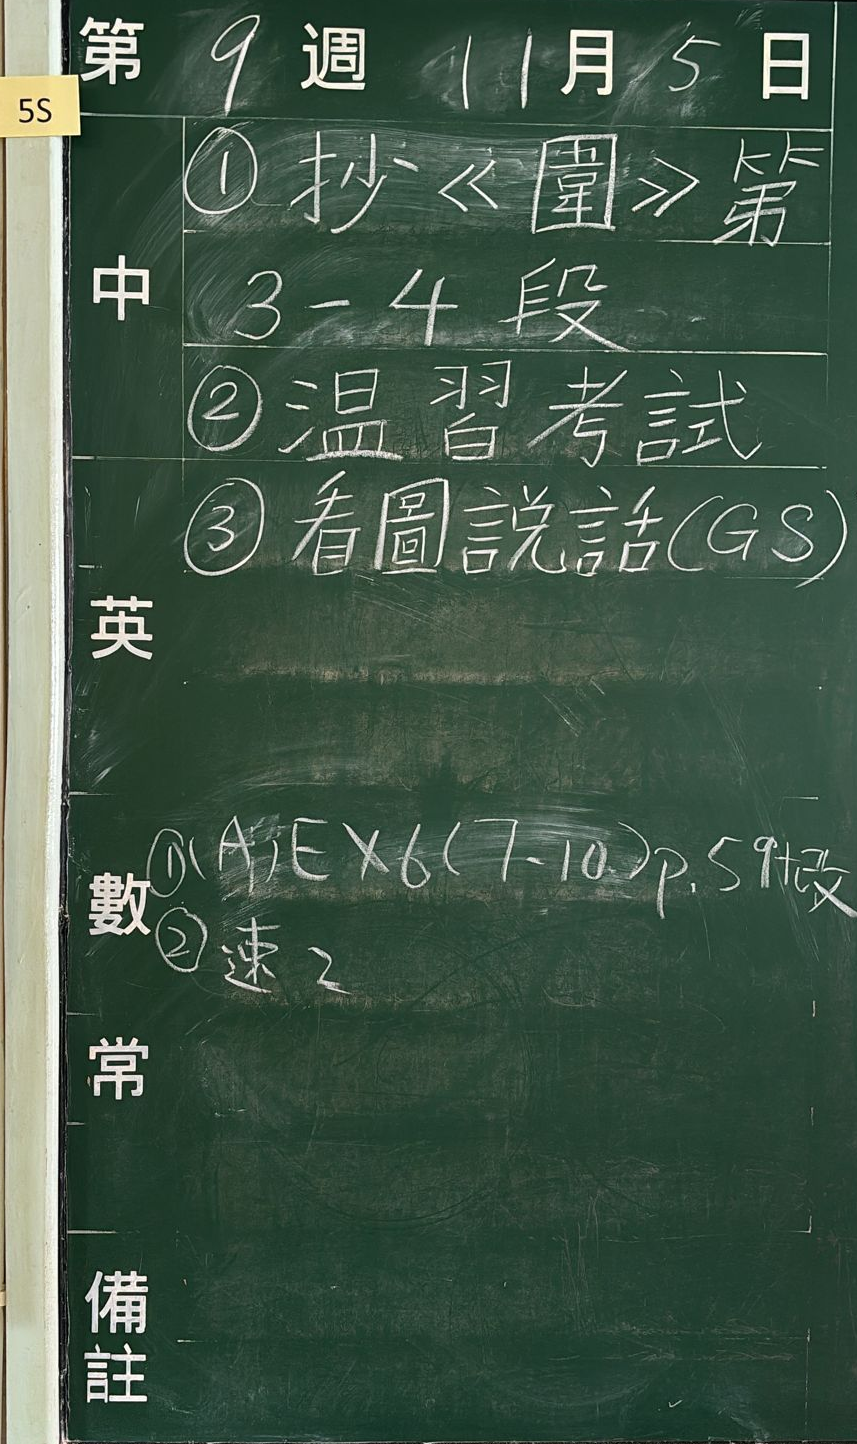 第 9 週 11 月 5 日
5S
中
① 抄《圍》第
3-4 段
② 温習考試
英
③ 看圖説話(GS)
數
① (A)EX6(7-10)p.59+改
② 速 2
常
備註